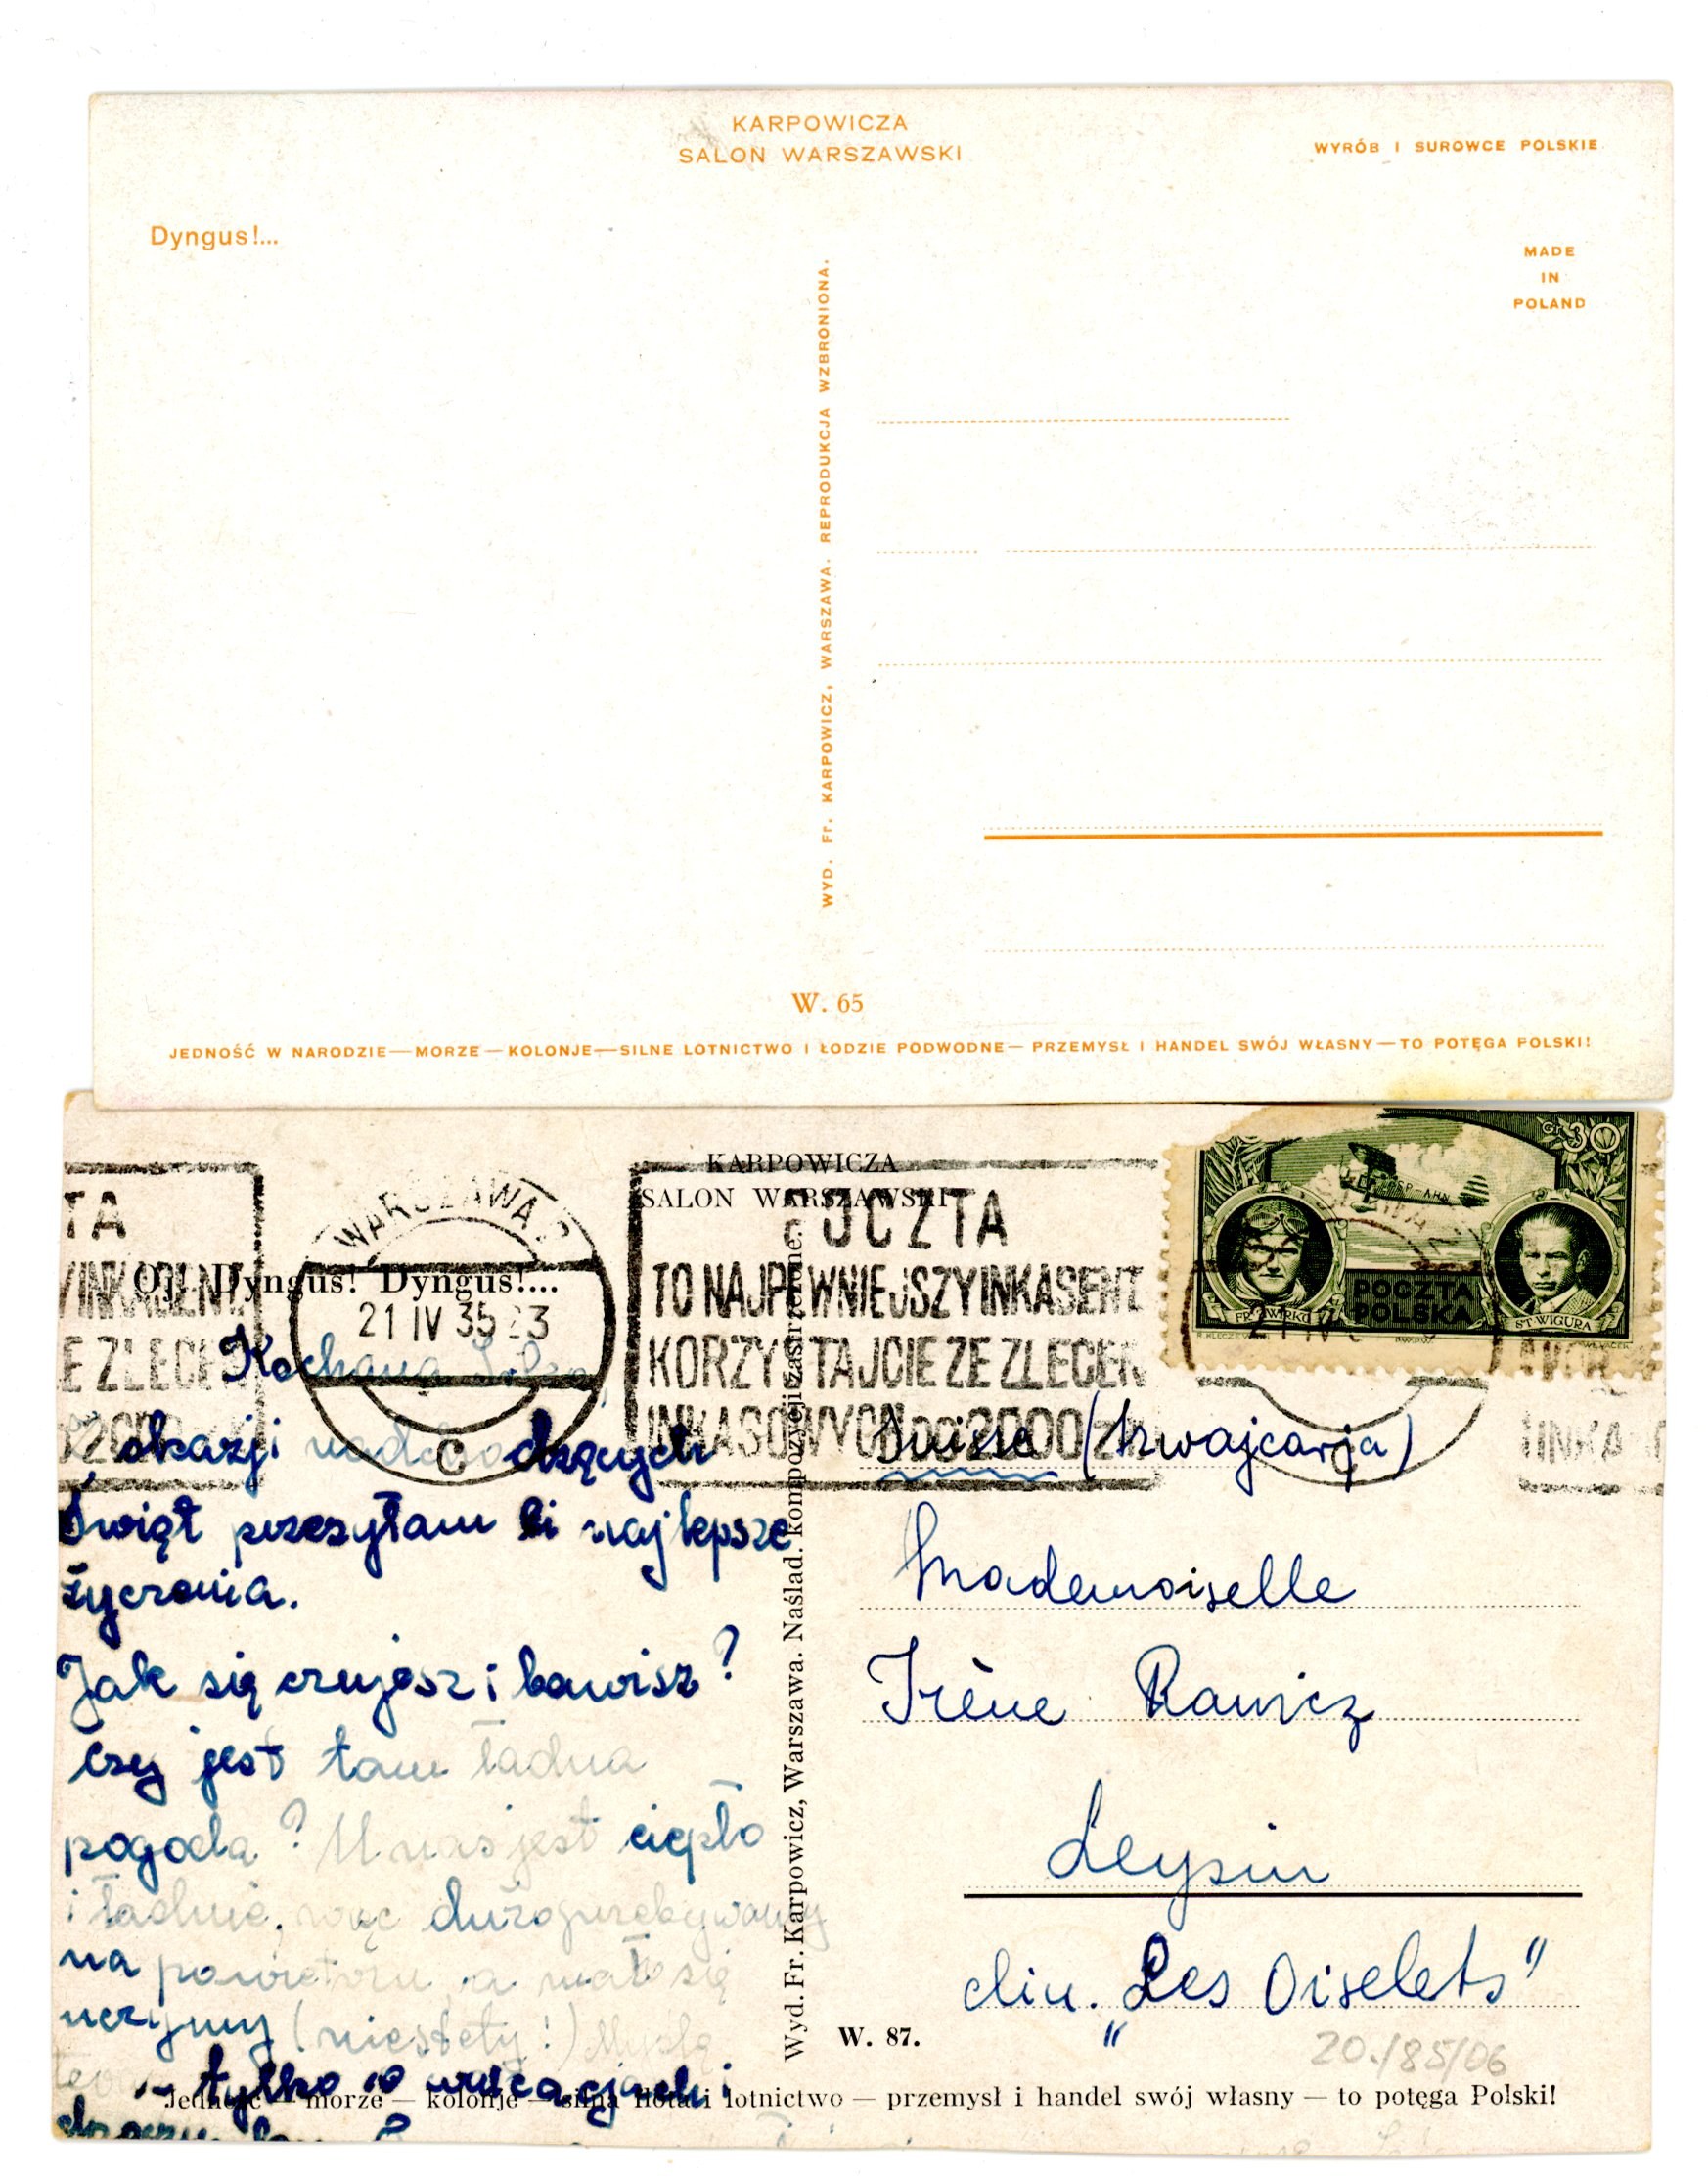 KARPOWICZA
SALON WARSZAWSKI
WYRÓB I SUROWCE POLSKIE
Dyngus!...
MADE
IN
POLAND
WYD. Fr. KARPOWICZ, WARSZAWA. REPRODUKCJA WZBRONIONA.
W. 65
JEDNOŚĆ W NARODZIE — MORZE — KOLONJE — SILNE LOTNICTWO I ŁODZIE PODWODNE — PRZEMYSŁ I HANDEL SWÓJ WŁASNY — TO POTĘGA POLSKI!
KARPOWICZA
SALON WARSZAWSKI
Oj! Dyngus! Dyngus!...
TA
INKASENT
ZE ZLECEŃ
WARSZAWA
21 IV 35 23
C
POCZTA
TO NAJPEWNIEJSZY INKASENT
KORZYSTAJCIE ZE ZLECEŃ
INKASOWYCH DO 2000 ZŁ
Gr 30
SP-AHN
POCZTA
POLSKA
FR. ŻWIRKO
ST. WIGURA
Kochana
Z okazji nadchodzących
Świąt przesyłam Ci najlepsze
życzenia.
Jak się czujesz i bawisz?
Czy jest tam ładna
pogoda? U nas jest ciepło
i ładnie, więc dużo przebywamy
na powietrzu a mało się
uczymy (niestety!) Myślę
tylko o wakacjach i
Wyd. Fr. Karpowicz, Warszawa. Naślad. kompozycji zastrzeżone.
Suisse (Szwajcarja)
Mademoiselle
Irène Rawicz
Leysin
clin. "Les Oiselets"
W. 87.
20./85/06
Jedność — morze — kolonje — silna flota i lotnictwo — przemysł i handel swój własny — to potęga Polski!